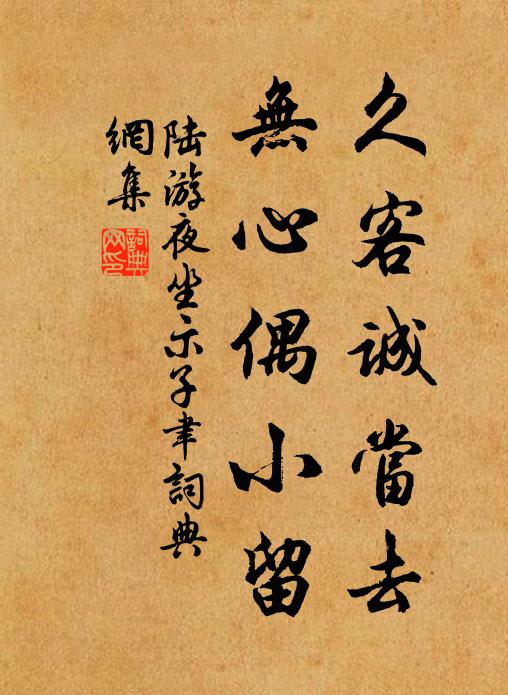 久客誠當去
無心偶小留
陆游夜坐示子聿詞典
網集
詞典
网印